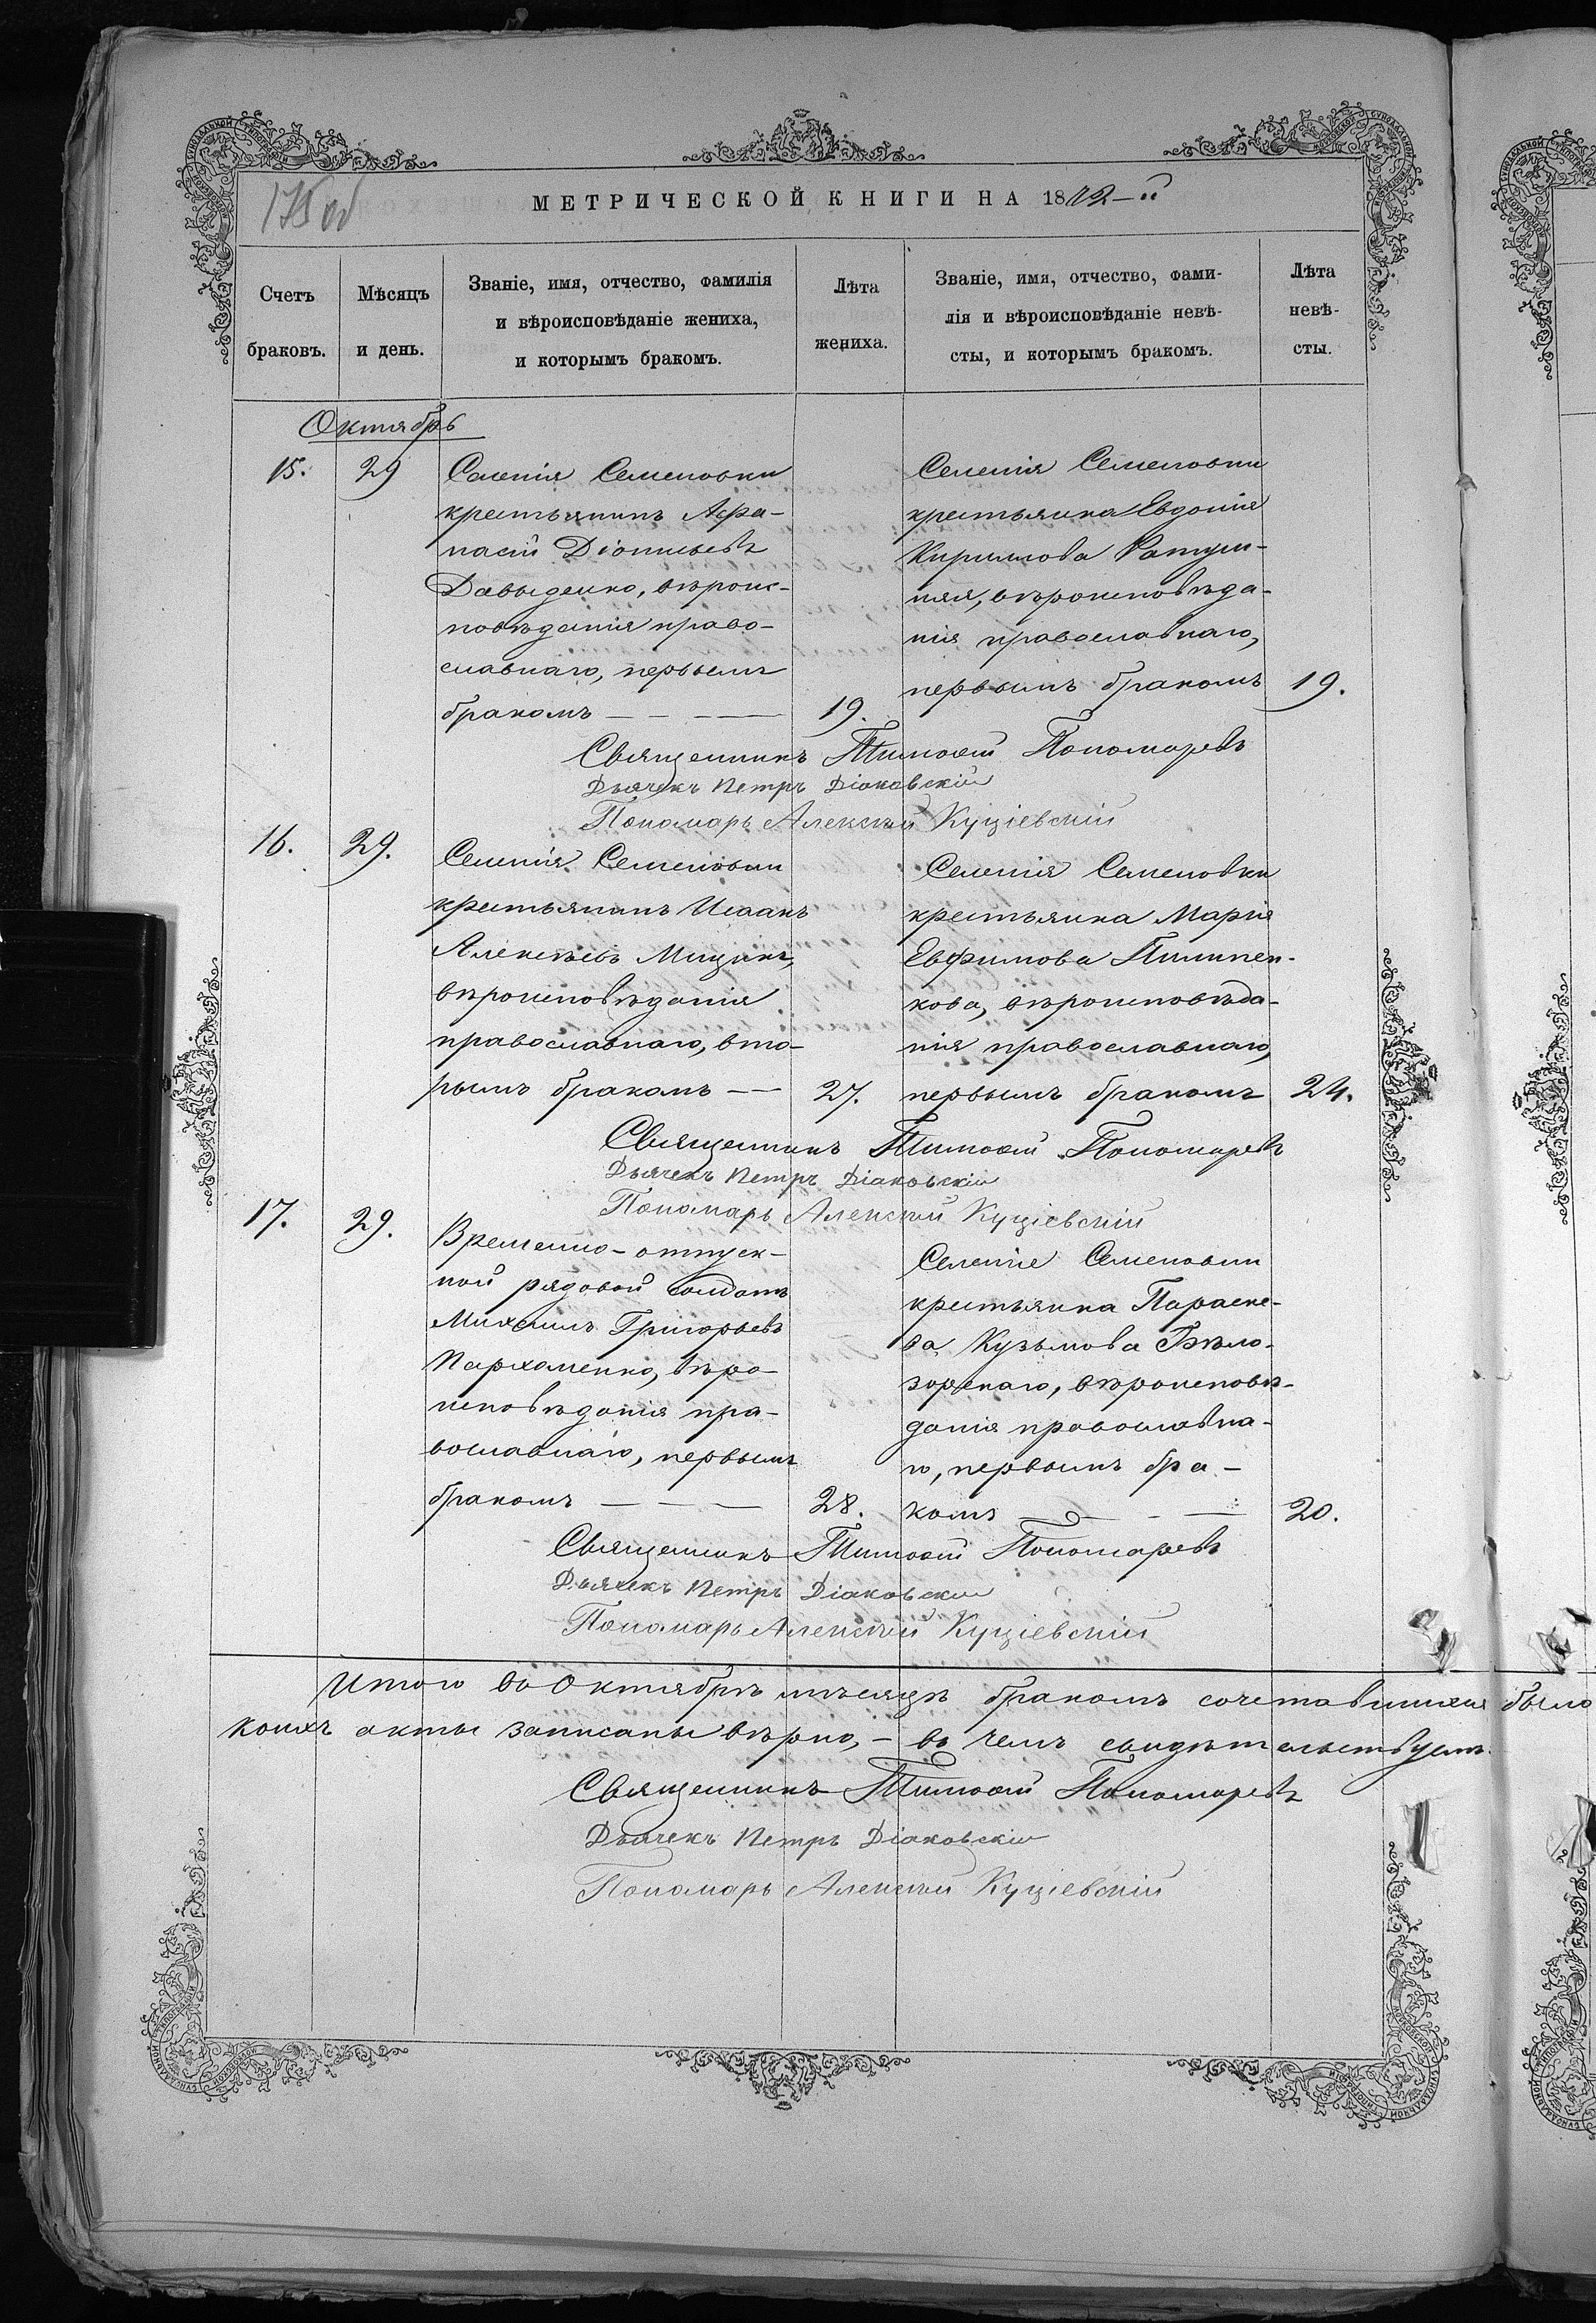 175 об
МЕТРИЧЕСКОЙ КНИГИ НА 1872-й
Счетъ
браковъ.
Мѣсяцъ
и день.
Званіе, имя, отчество, фамилія
и вѣроисповѣданіе жениха,
и которымъ бракомъ.
Лѣта
жениха.
Званіе, имя, отчество, фами-
лія и вѣроисповѣданіе невѣ-
сты, и которымъ бракомъ.
Лѣта
невѣ-
сты.
Октябрь
15.
29
Селенія Семеновки
крестьянинъ Афа-
насій Діонисьевъ
Давыденко, вѣроис-
повѣданія право-
славнаго, первымъ
бракомъ — — —
19.
Селенія Семеновки
крестьянка Евдокія
Кирилова Ратуш-
няя, вѣроисповѣда-
нія православнаго,
первымъ бракомъ
19.
Священникъ Тимоѳей Пономаревъ
Дьячекъ Петръ Діаковскій
Пономарь Алексѣй Куціевскій
16.
29.
Селенія Семеновки
крестьянинъ Исаакъ
Алексѣевъ Мицикъ,
вѣроисповѣданія
православнаго, вто-
рымъ бракомъ —
27.
Селенія Семеновки
крестьянка Марія
Евфимова Пилипен-
кова, вѣроисповѣда-
нія православнаго,
первымъ бракомъ
24.
Священникъ Тимоѳей Пономаревъ
Дьячекъ Петръ Діаковскій
Пономарь Алексѣй Куціевскій
17.
29.
Временно-отпуск-
ной рядовой солдатъ
Михаилъ Григорьевъ
Пархоменко, вѣро-
исповѣданія пра-
вославнаго, первымъ
бракомъ — — —
28.
Селенія Семеновки
крестьянка Параске-
ва Кузьмова Бѣло-
зорскаго, вѣроисповѣ-
данія православна-
го, первымъ бра-
комъ — - —
20.
Священникъ Тимоѳей Пономаревъ
Дьячекъ Петръ Діаковскій
Пономарь Алексѣй Куціевскій
Итого въ Октябрѣ мѣсяцѣ бракомъ сочетавшихся было
коихъ акты записаны вѣрно, – въ чемъ свидѣтельствуемъ.
Священникъ Тимоѳей Пономаревъ
Дьячекъ Петръ Діаковскій
Пономарь Алексѣй Куціевскій